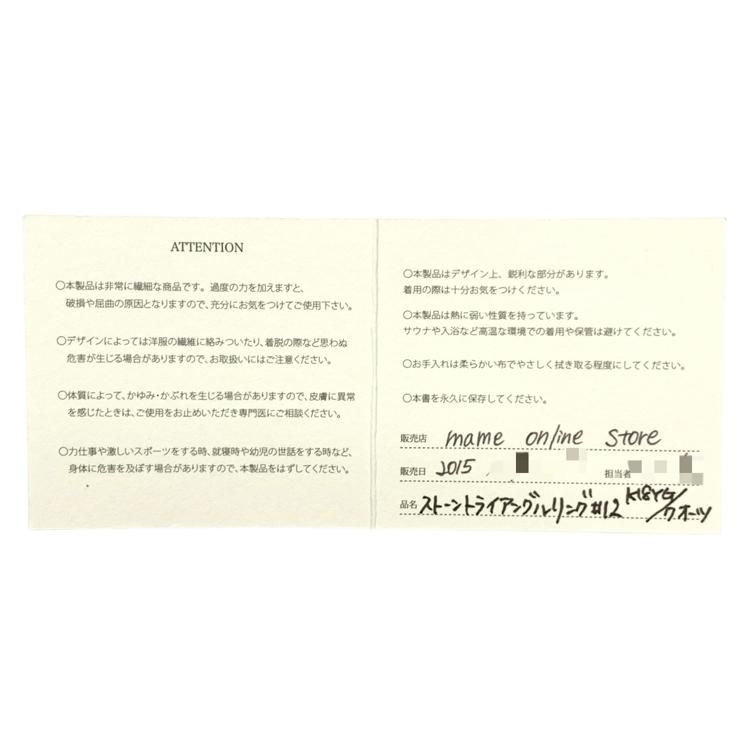 ATTENTION
○本製品は非常に繊細な商品です。過度の力を加えますと、
破損や屈曲の原因となりますので、充分にお気をつけてご使用下さい。
○デザインによっては洋服の繊維に絡みついたり、着脱の際など思わぬ
危害が生じる場合がありますので、お取扱いにはご注意ください。
○体質によって、かゆみ・かぶれを生じる場合がありますので、皮膚に異常
を感じたときは、ご使用をお止めいただき専門医にご相談ください。
○力仕事や激しいスポーツをする時、就寝時や幼児の世話をする時など、
身体に危害を及ぼす場合がありますので、本製品をはずしてください。
○本製品はデザイン上、鋭利な部分があります。
着用の際は十分お気をつけください。
○本製品は熱に弱い性質を持っています。
サウナや入浴など高温な環境での着用や保管は避けてください。
○お手入れは柔らかい布でやさしく拭き取る程度にしてください。
○本書を永久に保存してください。
販売店 mame online store
販売日 2015 担当者
品名 ストーントライアングルリング#12 K18YG/クオーツ